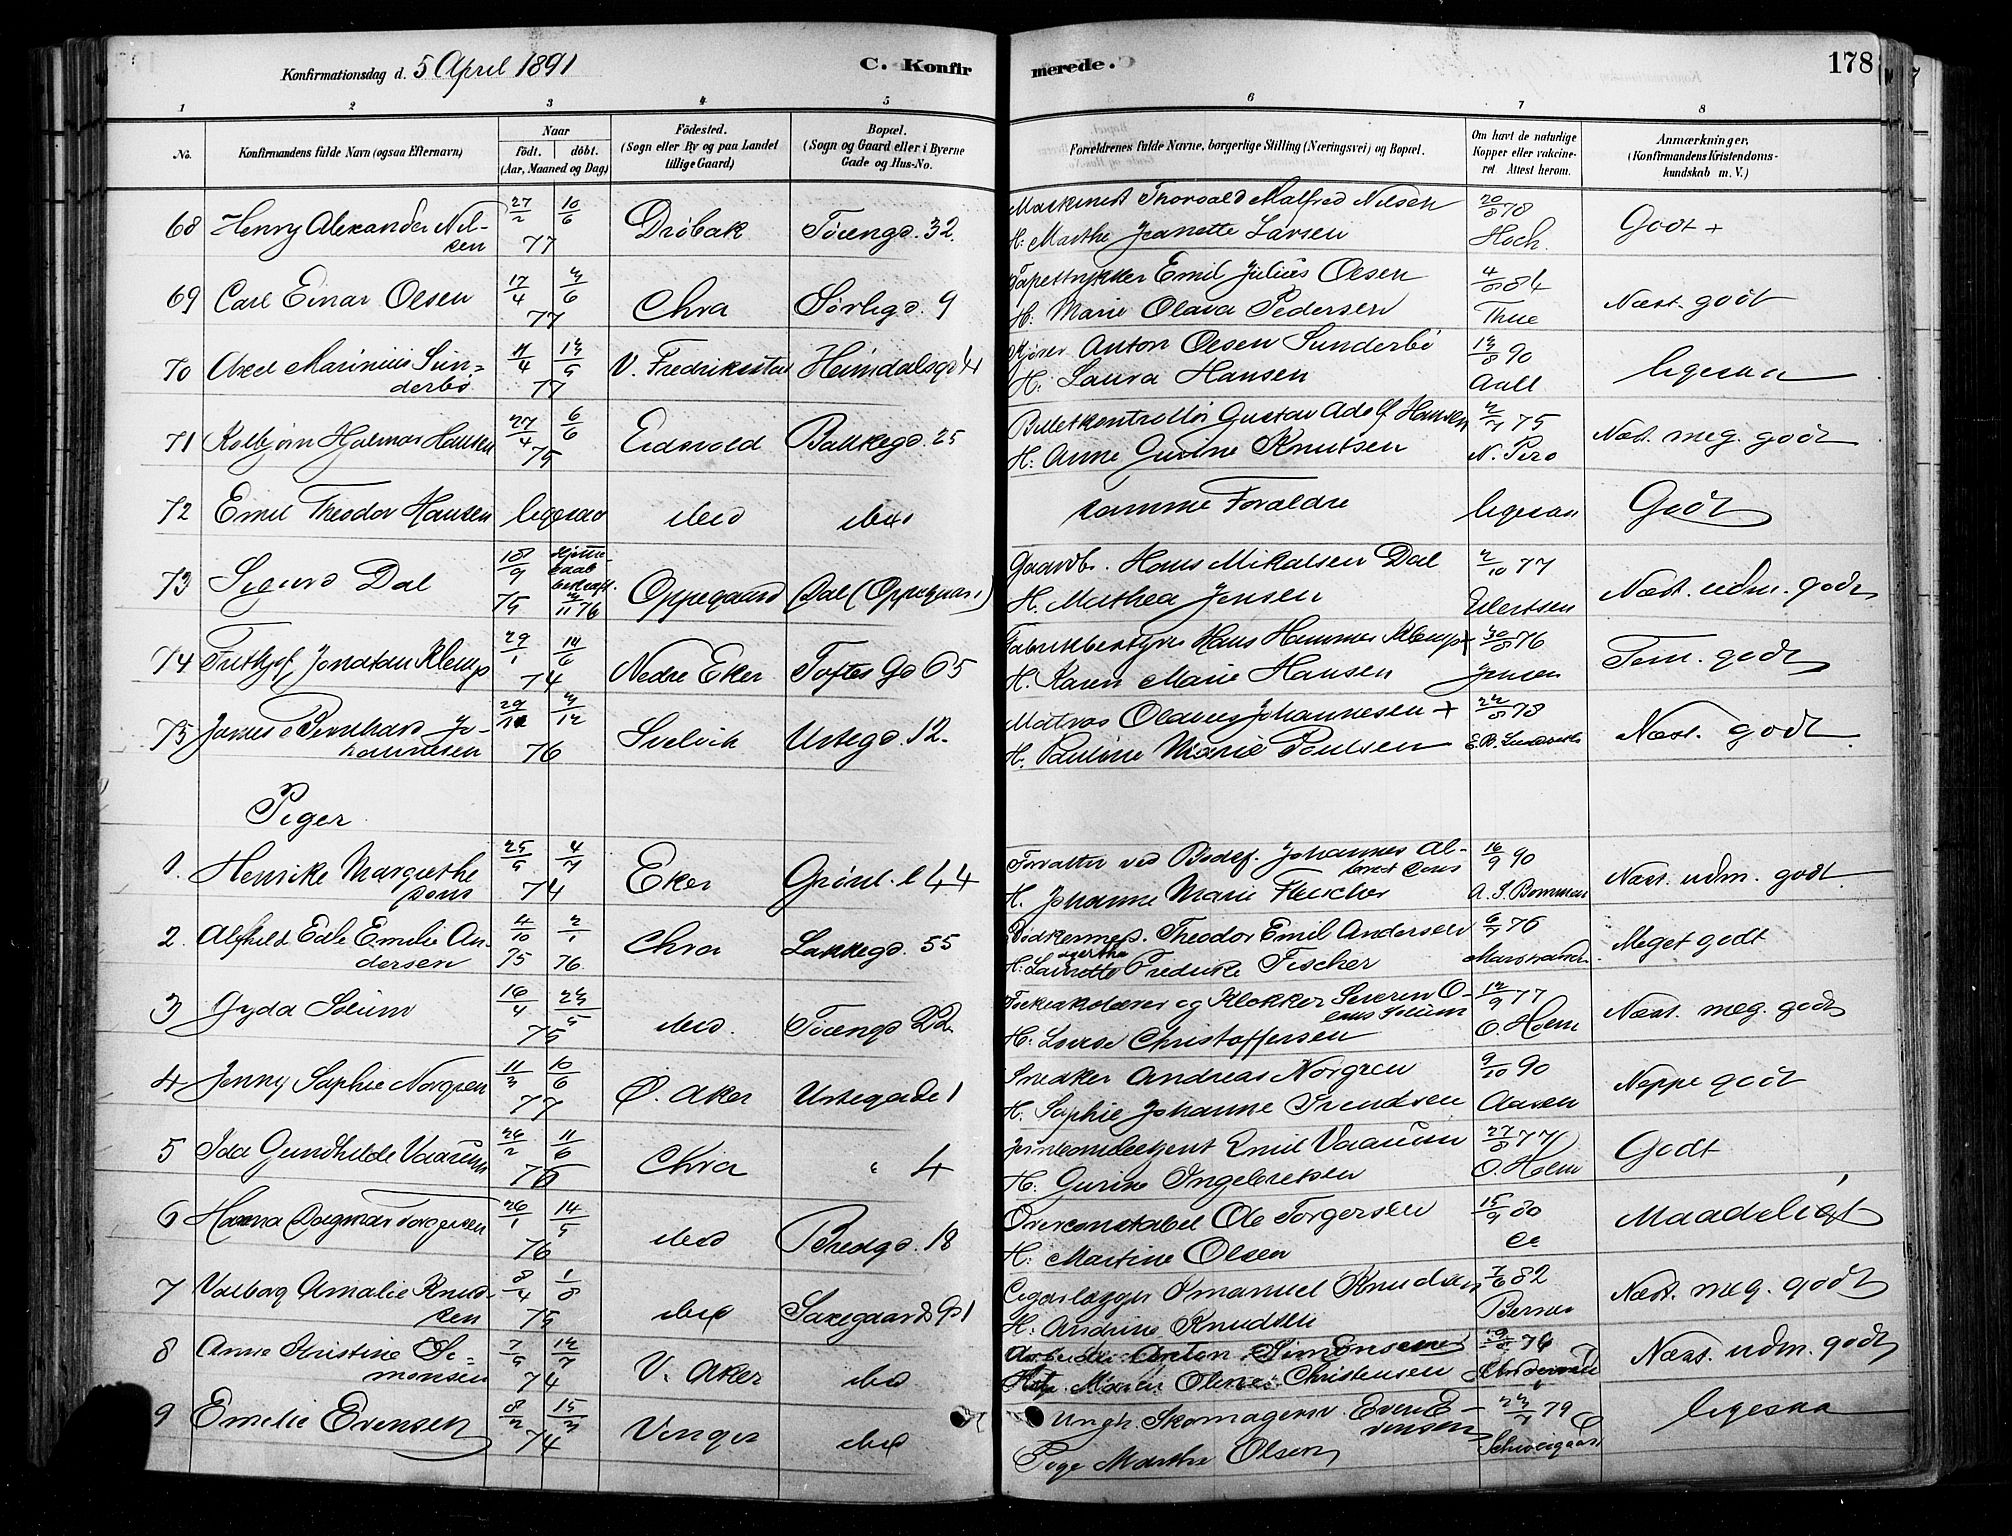 Konfirmationsdag d. 5 April 1891
C. Konfirmerede.
178
1 2 3 4 5 6 7 8
No.
Konfirmandens fulde Navn (ogsaa Efternavn)
Naar født. døbt. (Aar, Maaned og Dag)
Födested. (Sogn eller By og paa Landet tillige Gaard)
Bopæl. (Sogn og Gaard eller i Byerne Gade og Hus-No.
Forældrenes fulde Navne, borgerlige Stilling (Næringsvei) og Bopæl.
Om havt de naturlige Kopper eller vakcineret Attest herom.
Anmærkninger. (Konfirmandens Kristendomskundskab m. V.)
68 Henry Alexander Nilsen 27/2 10/6 77 Drøbak Tøiengd. 32. Maskinist Thorvald Malfred Nilsen 20/8 78 Godt +
H. Marthe Jeanette Larsen Hoch.
69 Carl Einar Olsen 17/4 3/6 77 Chra Sørligd. 9 Tapettrykker Emil Julius Olsen 4/8 84 Næst. godt
H. Marie Olava Pedersen Thue
70 Axel Marinius Sunderbø 11/4 13/5 77 V. Fredrikstad Heimdalsgd 4 Kjører Anton Olsen Sunderbø 13/8 90 ligesaa
H. Laura Hansen Aall
71 Kolbjørn Hjalmar Hansen 27/4 6/6 75 Eidsvold Bakkegd. 25 Billetkontrollør Gustav Adolf Hansen 75 Næst. meg. godt
H. Anne Gurine Knutsen
72 Emil Theodor Hansen ligesaa ibid ibid samme Foraldre ligesaa Godt
73 Sigurd Dal 18/9 75 11 76 Oppegaard Dal (Oppegaard) Gaardbr. Hans Mikalsen Dal 2/10 77 Næst. udm. godt
H. Mathea Jensen Eilertsen
74 Frithjof Jonatan Klemp 29/1 14/6 74 Nedre Eker Toftes Gd 65 Fabrikbestyrer Hans Hammer Klemp + 30/8 76 Tem. godt
H. Karen Marie Hansen Jensen
75 James Bernhard Johannesen 29 3/12 76 Svelvik Urtegd. 12. Matros Olaus Johannesen + 22/8 78 Næst. godt
H. Pauline Marie Paulsen
Piger
1. Henrike Margrethe 25/5 4/7 74 Eker Grønl. l 44 Forvalter ved Bodsf. Johannes Al- 16/9 90 Næst. udm. godt
H. Johanne Marie Fleischer
2. Alfhild Edle Emelie Andersen 4/10 75 2/1 76. Chra Lakkegd. 55 Theodor Emil Andersen 6/7 76 Meget godt
Fredrike Fischer
3 Gyda Solum 16/4 23/5 75 ibid. Tøiengd 22. Folkeskolelærer og Klokker Severin Solum 12/9 77 Næst. meg. godt
H. Lovise Christoffersen O. Holm
4 Jenny Sophie Norgren 11/3 10/6 77 Ø. Aker Urtegade 1 Snedker Andreas Norgren 9/10 90 Neppe godt
H. Sophie Johanne Svendsen Aasen
5 Ida Gundhilde Vaarum 26/2 11/6 76 Chra " 4 Emil Vaarum 27/8 77 Godt
H. Gurine Ingebretsen O. Holm
6 Hanna Dagmar Torgersen 26/1 14/5 76 ibid Bredgd. 18 Overconstabel Ole Torgersen 15/9 80 Maadeligt
H. Martine Olsen
7 Valborg Amalie Knudsen 8/4 1/8 75 ibid Saxegaardsgd 1 Cigarlægger Emanuel Knudsen 7/6 82 Næst. meg. godt
H. Andrine Knudsen Berner
8 Anna Kristine Simonsen 7/5 12/7 74 V. Aker ibid Arbeider Anton Simonsen 9/8 76 Næst. udm. godt
Maren Oline Christensen
9 Emelie Evensen 8/2 15/3 74 Vinger ibid Ungk. Skomagersv. Even Evensen 79 ligesaa
Pige Marthe Olsen Schweigaard